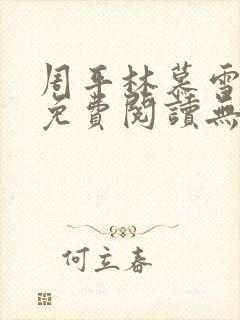 周平林慕雪
免費閱讀無
何立春